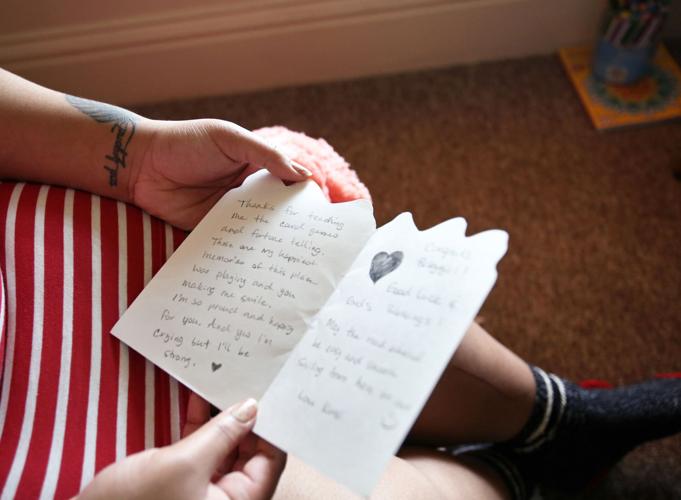 Thanks for teaching
me the card games
and fortune telling.
These are my happiest
memories of this place
was playing and you
making me smile.
I'm so proud and happy
for you. And yes I'm
crying but I'll be
strong. ♥
Congrats
♥ Good luck &
God's blessings!
May the road ahead
be easy and smooth
sailing from here on out
Love